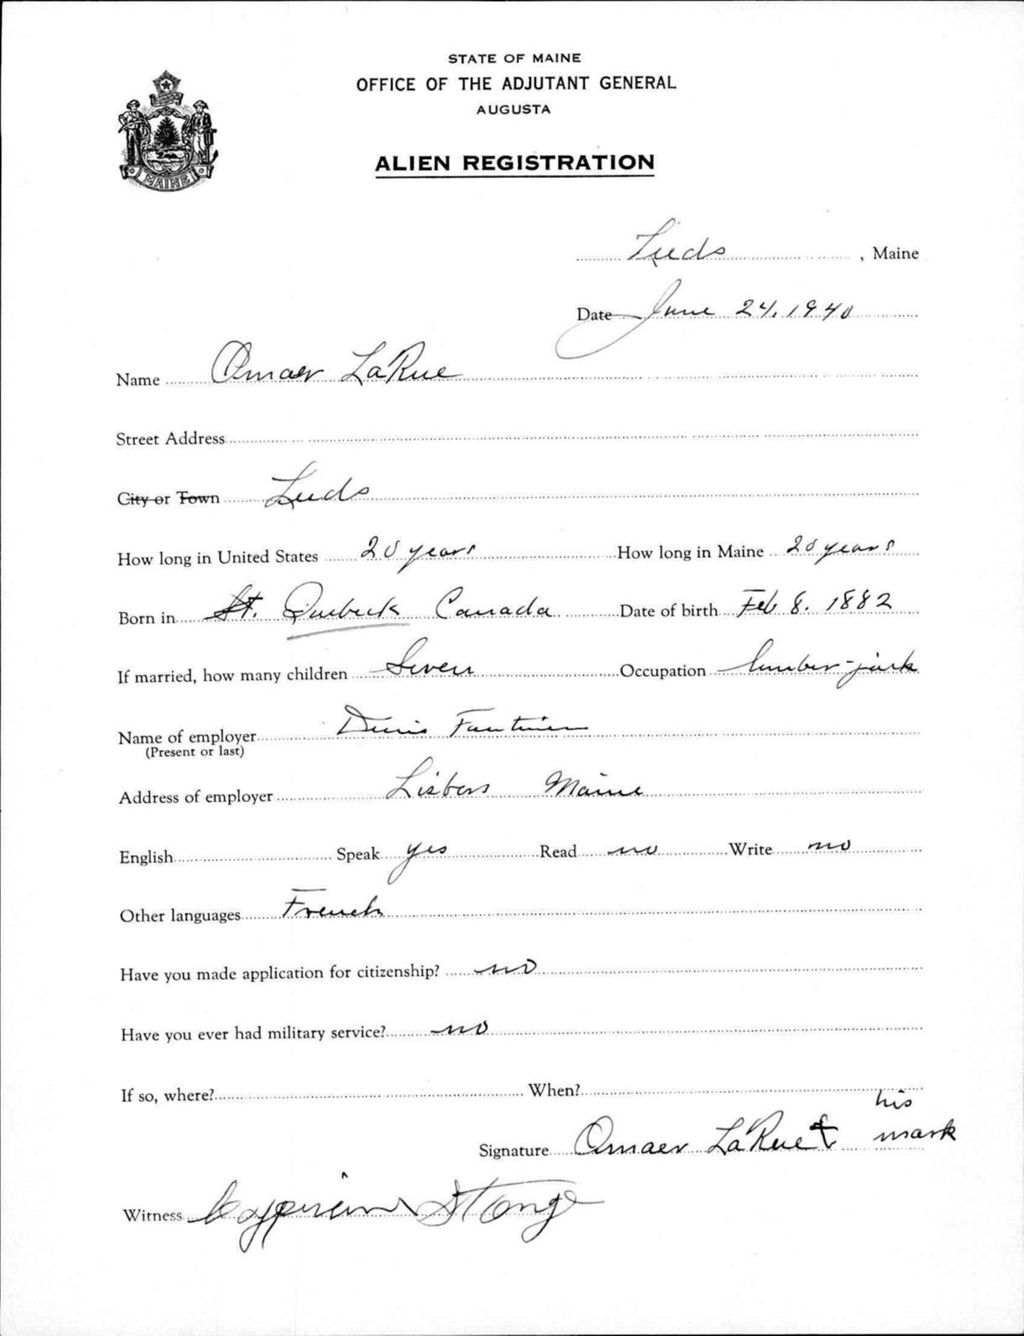 STATE OF MAINE
OFFICE OF THE ADJUTANT GENERAL
AUGUSTA
ALIEN REGISTRATION
MAINE
Leeds, Maine
Date June 24, 1940
Name Omaer LaRue
Street Address
City or Town Leeds
How long in United States 20 years How long in Maine 20 years
Born in St. Quebeck Canada Date of birth Feb 8. 1882
If married, how many children Seven Occupation lumber-jack
Name of employer Denis
(Present or last)
Address of employer Lisbon Maine
English Speak yes Read no Write no
Other languages French
Have you made application for citizenship? no
Have you ever had military service? no
If so, where? When?
his
Signature Omaer LaRue mark
Witness St Onge